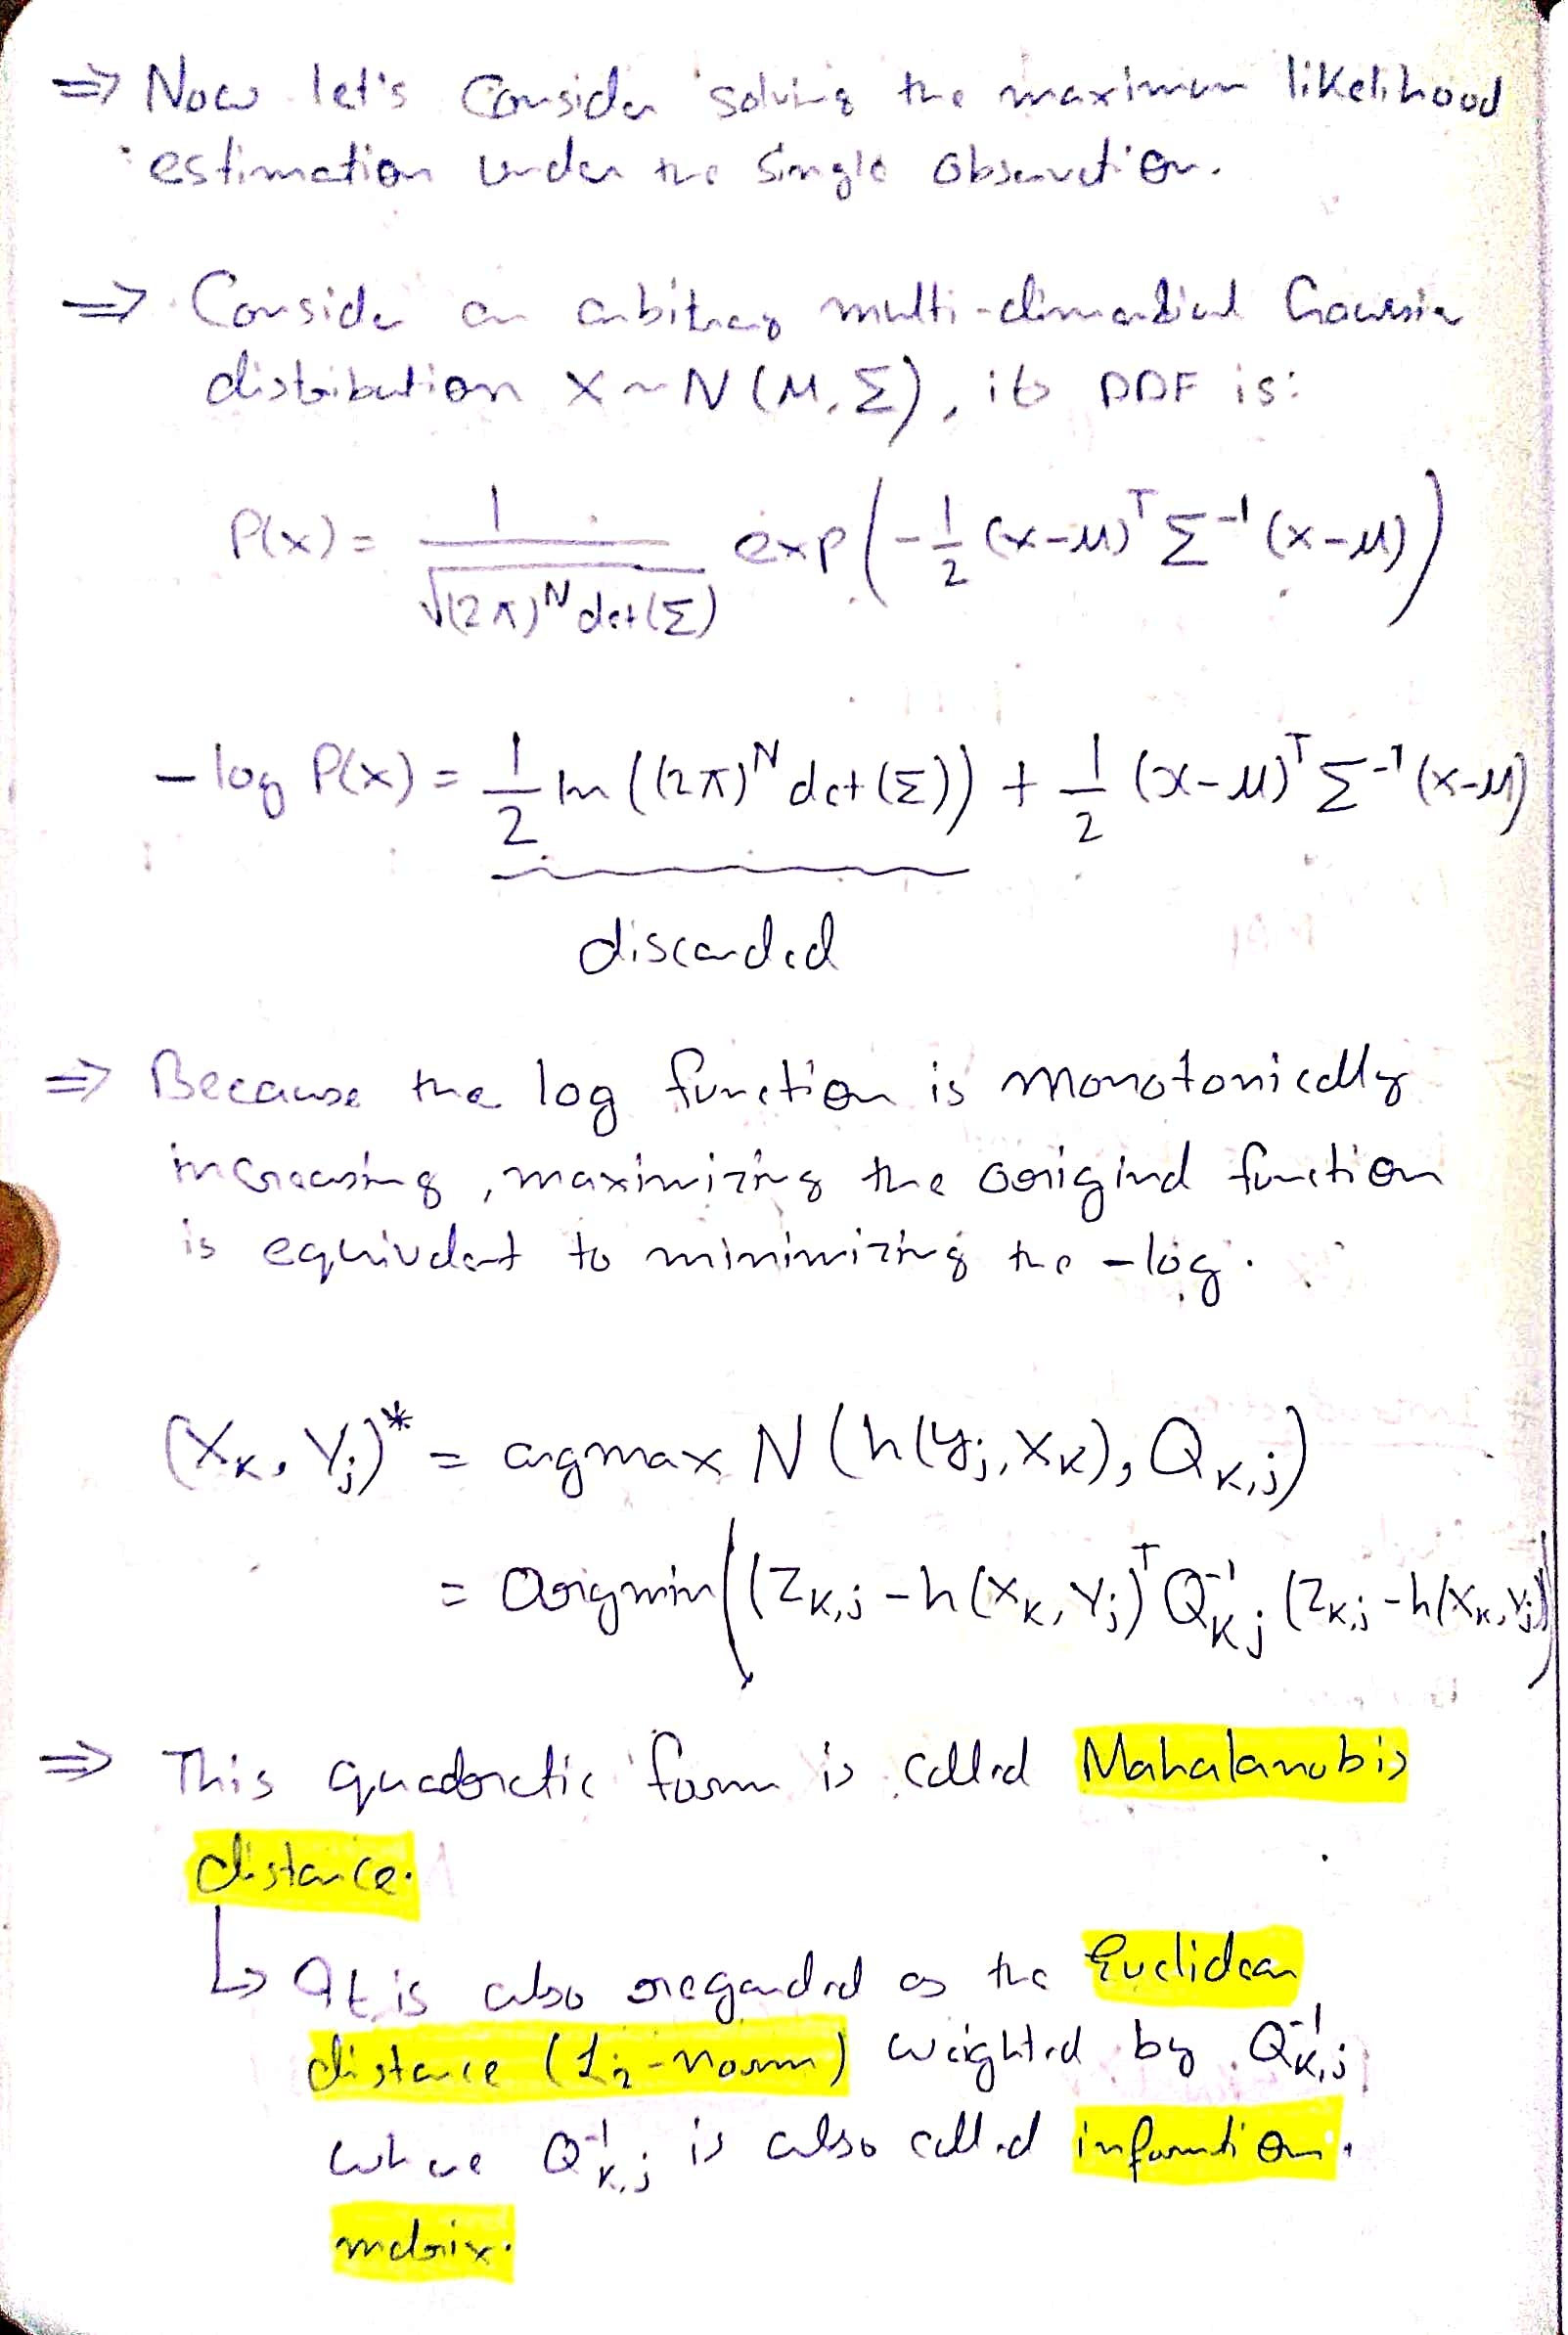 ⇒ Now let's Consider solving the maximum likelihood
estimation under the single observation.
⇒ Consider an arbitrary multi-dimensional Gaussian
distribution X ~ N(μ, Σ), its PDF is:
P(x) = 1/√((2π)^N det(Σ)) exp(-1/2 (x-μ)^T Σ^-1 (x-μ))
-log P(x) = 1/2 ln((2π)^N det(Σ)) + 1/2 (x-μ)^T Σ^-1 (x-μ)
discarded
⇒ Because the log function is monotonically
increasing, maximizing the original function
is equivalent to minimizing the -log.
(X_k, Y_j)* = argmax N(h(y_j, x_k), Q_k,j)
= argmin((z_k,j - h(x_k, y_j)^T Q^-1_k,j (z_k,j - h(x_k, y_j))
⇒ This quadratic form is called Mahalanobis
distance.
↳ It is also regarded as the Euclidean
distance (L2-norm) weighted by Q^-1_k,j
where Q^-1_k,j is also called information
matrix.